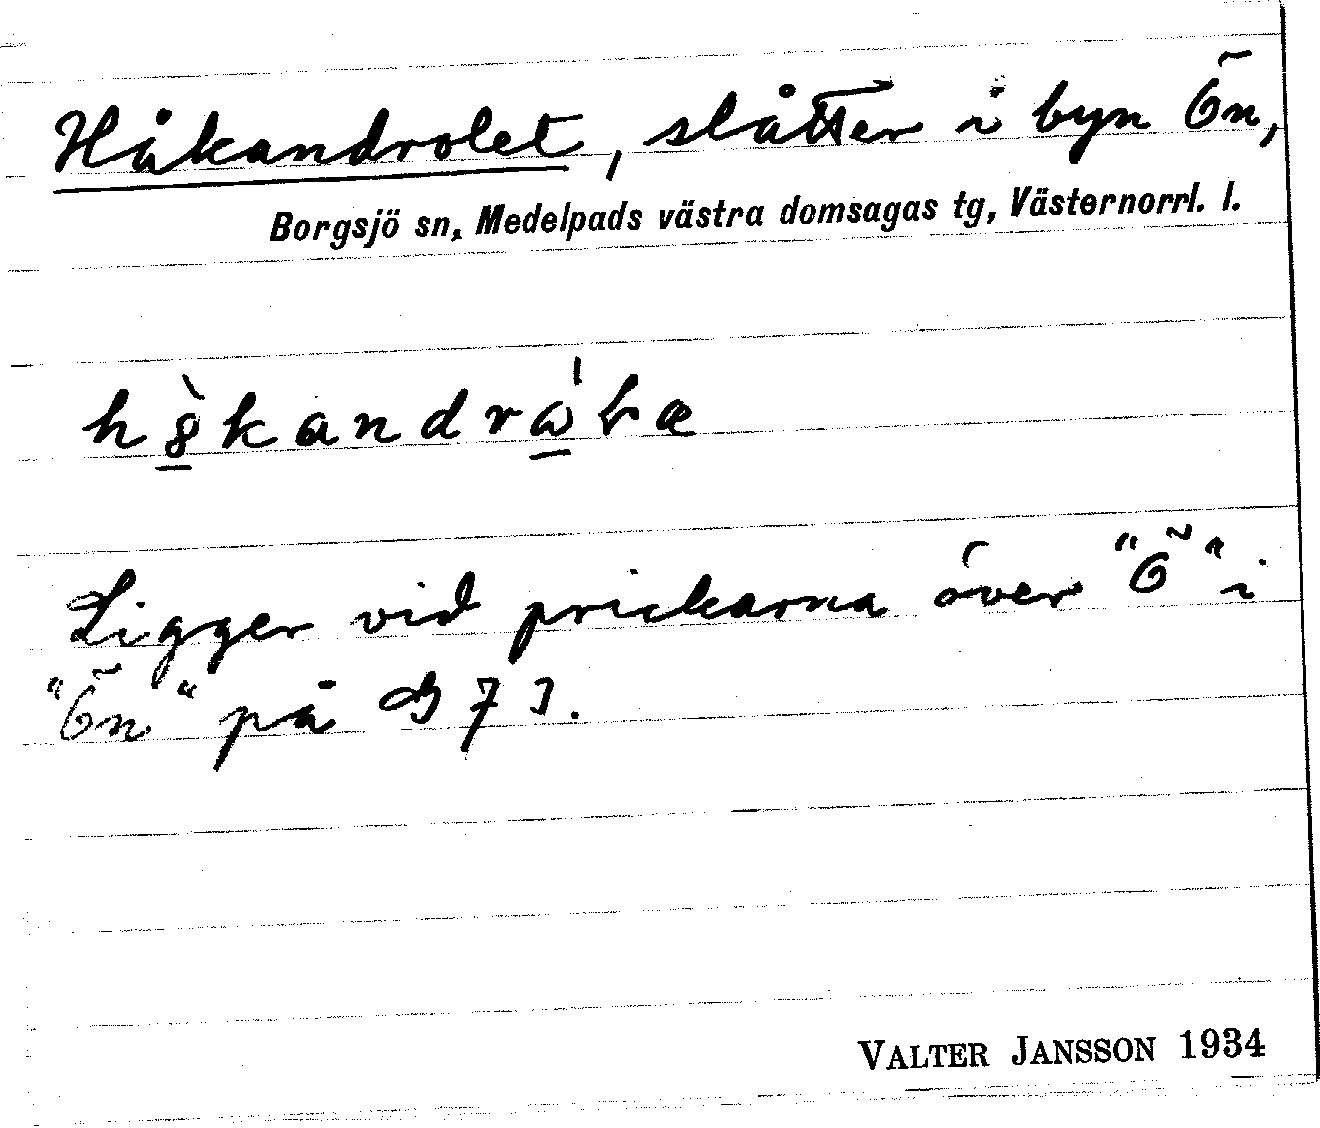 Håkandrolet, slåtter i byn Ön,
Borgsjö sn, Medelpads västra domsagas tg, Västernorrl. l.
Ligger vid prickarna över "Ö" i
"Ön" på B 7 J.
VALTER JANSSON 1934